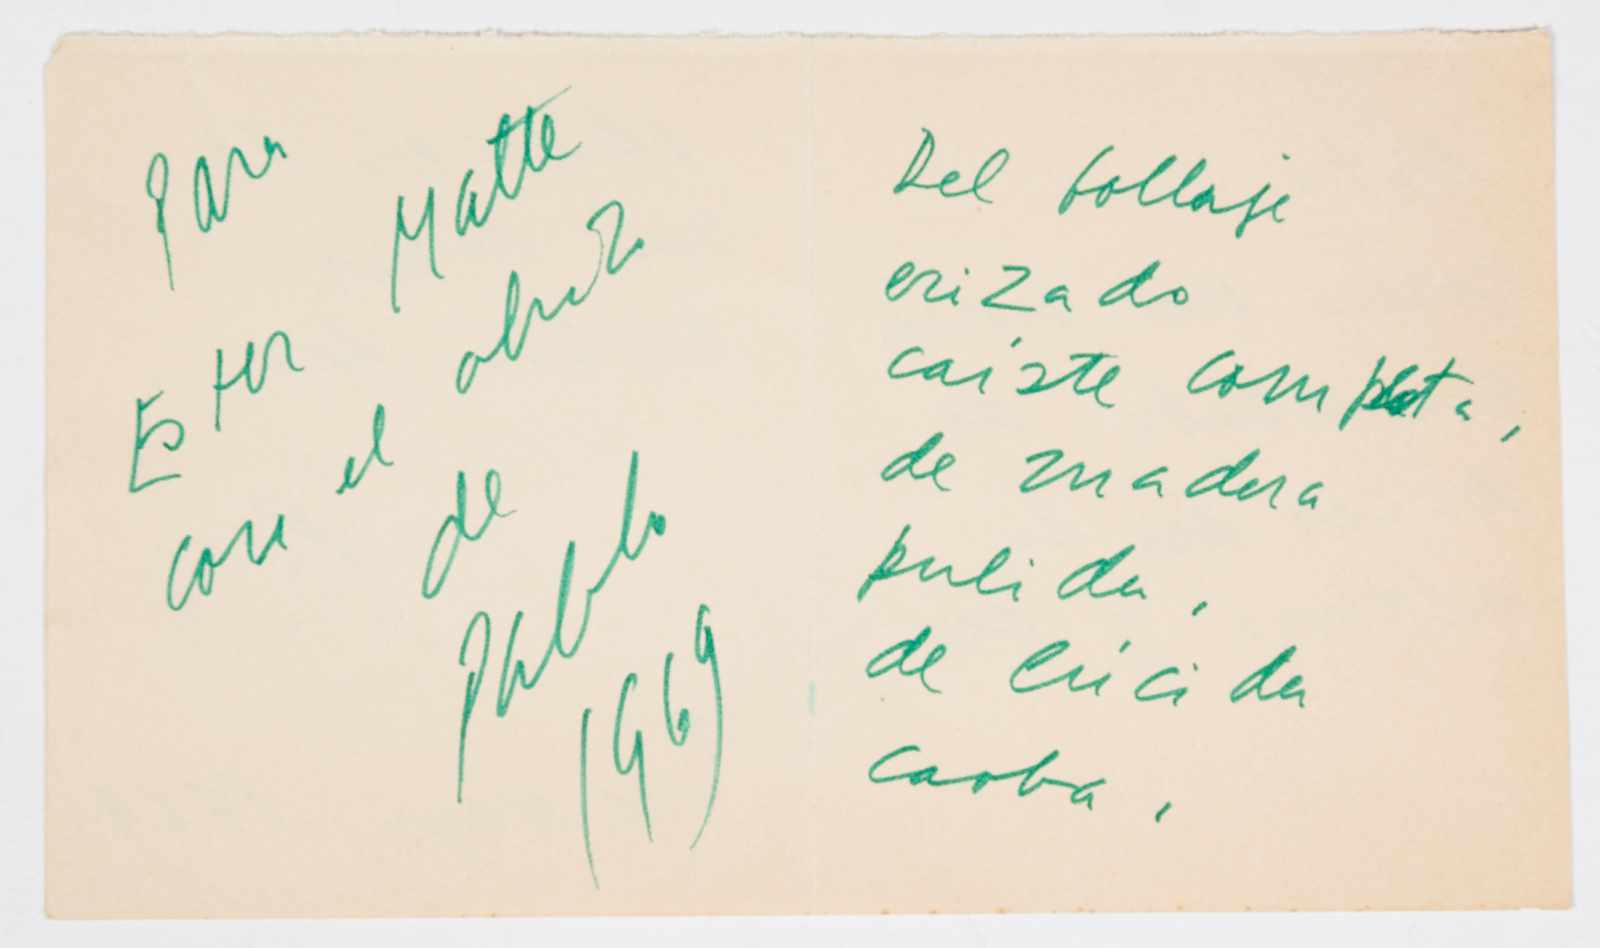 Para
Ester Matte
con el abrazo
de
Pablo
1969
Del follaje
erizado
caíste completa,
de madera
pulida,
de lúcida
caoba,